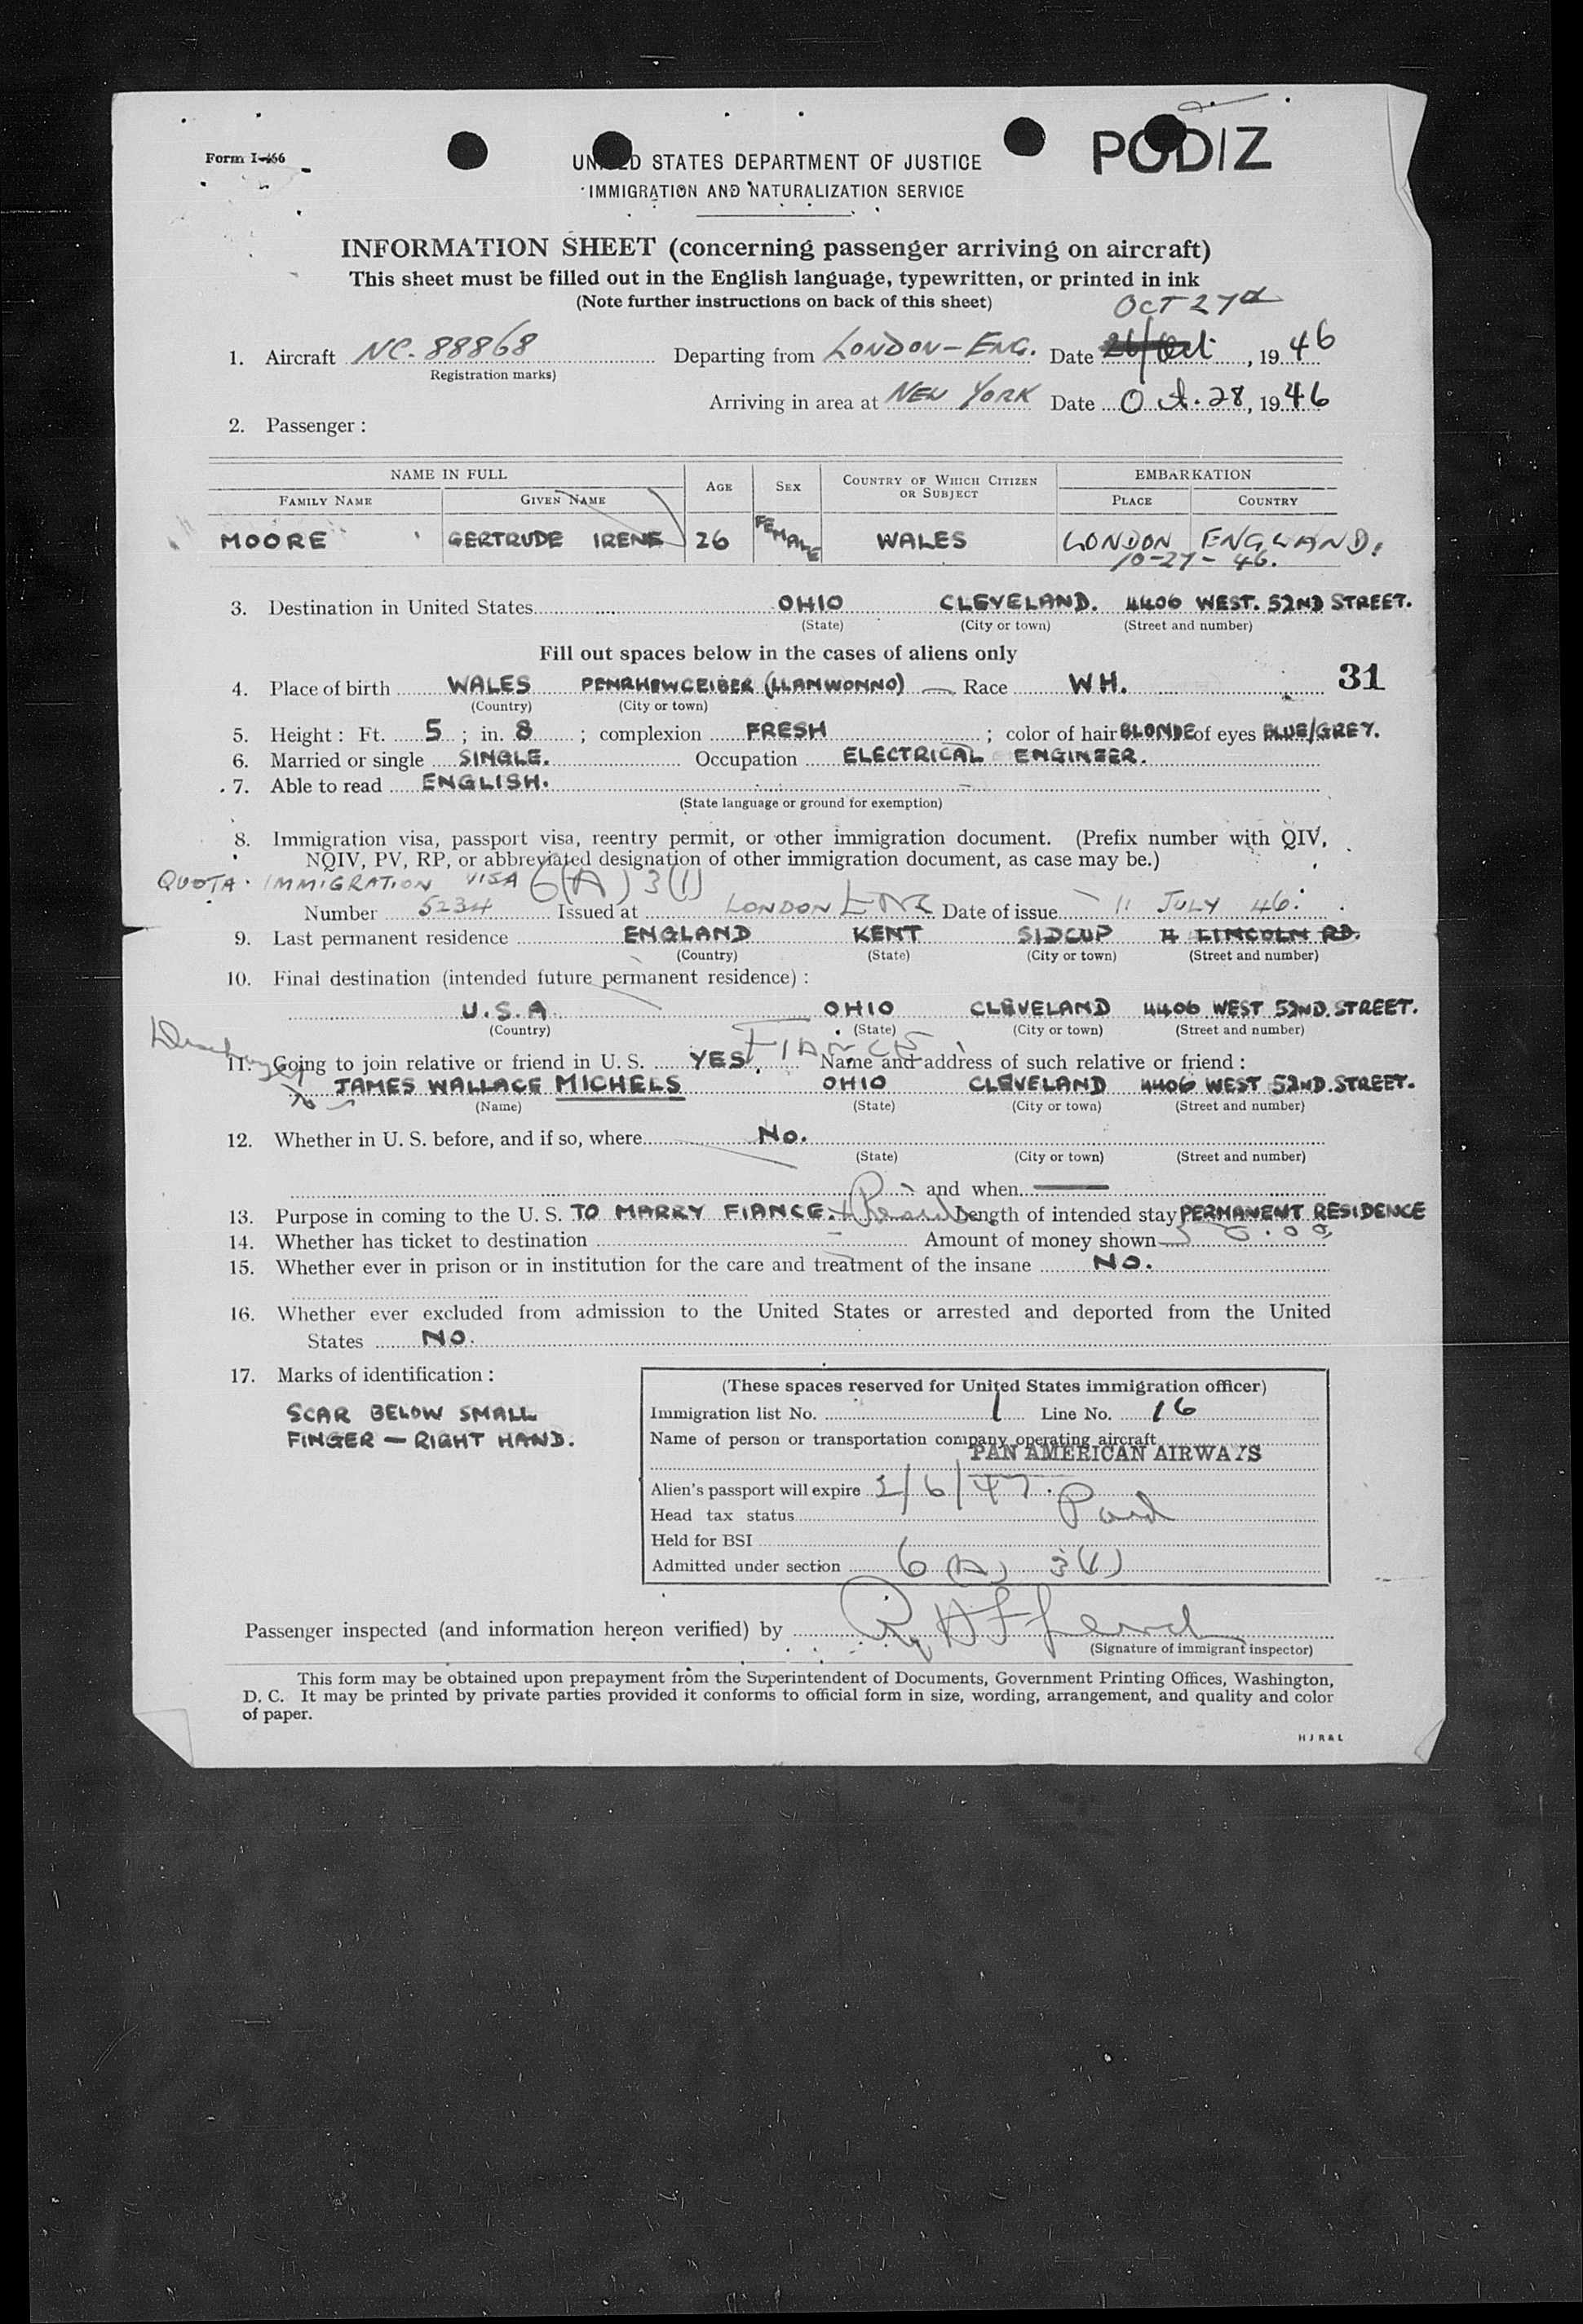 PODIZ
Form I-466
UNITED STATES DEPARTMENT OF JUSTICE
IMMIGRATION AND NATURALIZATION SERVICE
INFORMATION SHEET (concerning passenger arriving on aircraft)
This sheet must be filled out in the English language, typewritten, or printed in ink
(Note further instructions on back of this sheet)
OCT 27
1. Aircraft NC. 88868 Departing from LONDON - ENG. Date 26/Oct, 1946
(Registration marks)
Arriving in area at NEW YORK Date Oct. 28, 1946
2. Passenger:
NAME IN FULL AGE SEX COUNTRY OF WHICH CITIZEN OR SUBJECT EMBARKATION
FAMILY NAME GIVEN NAME PLACE COUNTRY
MOORE GERTRUDE IRENE 26 FEMALE WALES LONDON ENGLAND.
10-27-46.
3. Destination in United States OHIO CLEVELAND. 4406 WEST. 52ND STREET.
(State) (City or town) (Street and number)
Fill out spaces below in the cases of aliens only
31
4. Place of birth WALES PENRHEWCEIBER (LLANWONNO) Race WH.
(Country) (City or town)
5. Height: Ft. 5; in. 8; complexion FRESH; color of hair BLONDE of eyes BLUE/GREY.
6. Married or single SINGLE. Occupation ELECTRICAL ENGINEER.
7. Able to read ENGLISH.
(State language or ground for exemption)
8. Immigration visa, passport visa, reentry permit, or other immigration document. (Prefix number with QIV,
NQIV, PV, RP, or abbreviated designation of other immigration document, as case may be.)
QUOTA. IMMIGRATION VISA 6(A) 3(1)
Number 5234 Issued at LONDON ENG Date of issue 11 JULY 46.
9. Last permanent residence ENGLAND KENT SIDCUP 4 LINCOLN RD.
(Country) (State) (City or town) (Street and number)
10. Final destination (intended future permanent residence):
U.S.A. OHIO CLEVELAND 4406 WEST 52ND. STREET.
(Country) (State) (City or town) (Street and number)
FIANCE
11. Going to join relative or friend in U. S. YES. Name and address of such relative or friend:
JAMES WALLACE MICHELS OHIO CLEVELAND 4406 WEST 52ND. STREET.
(Name) (State) (City or town) (Street and number)
12. Whether in U. S. before, and if so, where No.
(State) (City or town) (Street and number)
and when —
13. Purpose in coming to the U. S. TO MARRY FIANCE. Length of intended stay PERMANENT RESIDENCE
14. Whether has ticket to destination Amount of money shown
15. Whether ever in prison or in institution for the care and treatment of the insane NO.
16. Whether ever excluded from admission to the United States or arrested and deported from the United
States NO.
17. Marks of identification:
SCAR BELOW SMALL
FINGER — RIGHT HAND.
(These spaces reserved for United States immigration officer)
Immigration list No. 1 Line No. 16
Name of person or transportation company operating aircraft
PAN AMERICAN AIRWAYS
Alien's passport will expire 2/6/47.
Head tax status Paid
Held for BSI
Admitted under section 6 (A) 3(1)
Passenger inspected (and information hereon verified) by
(Signature of immigrant inspector)
This form may be obtained upon prepayment from the Superintendent of Documents, Government Printing Offices, Washington,
D. C. It may be printed by private parties provided it conforms to official form in size, wording, arrangement, and quality and color
of paper.
H J R & L